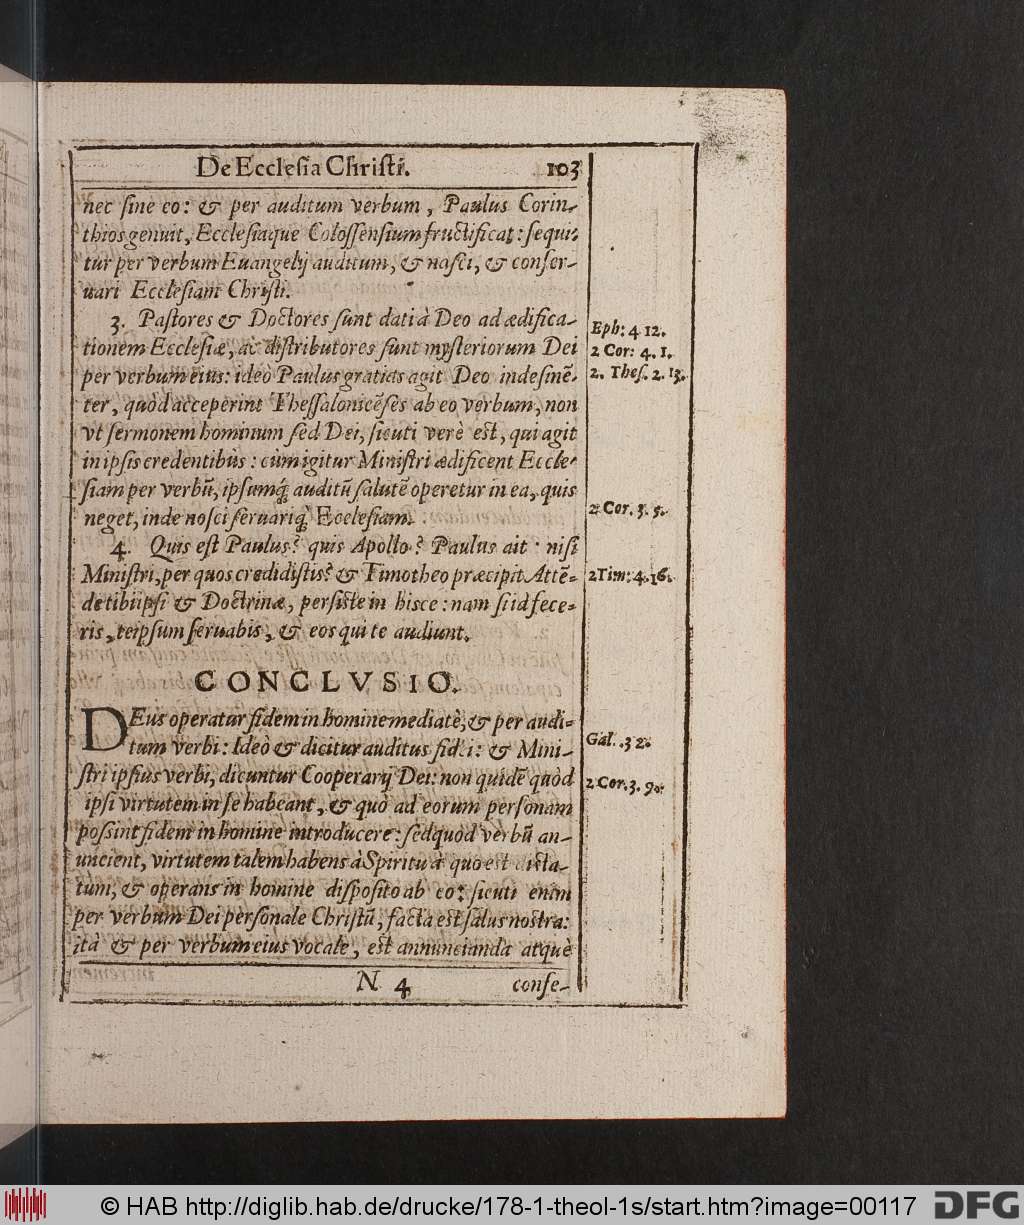 De Ecclesia Christi. 103
nec sine eo: & per auditum verbum, Paulus Corin-
thios genuit, Ecclesiaque Colossensium fructificat: sequi-
tur per verbum Euangelij auditum, & nasci, & conser-
uari Ecclesiam Christi.
3. Pastores & Doctores sunt dati à Deo ad ædifica-
tionem Ecclesiæ, ac distributores sunt mysteriorum Dei
per verbum eius: ideò Paulus gratias agit Deo indesinē-
ter, quòd acceperint Thessalonicēses ab eo verbum, non
vt sermonem hominum sed Dei, sicuti verè est, qui agit
in ipsis credentibus: cùm igitur Ministri ædificent Eccle-
siam per verbū, ipsumq́; auditū salutē operetur in ea, quis
neget, inde nosci seruariq́; Ecclesiam.
4. Quis est Paulus? quis Apollo? Paulus ait: nisi
Ministri, per quos credidistis? & Timotheo præcipit Attē-
de tibi ipsi & Doctrinæ, persiste in hisce: nam si id fece-
ris, teipsum seruabis, & eos qui te audiunt.
CONCLVSIO.
DEus operatur fidem in homine mediatè, & per audi-
tum verbi: Ideò & dicitur auditus fidei: & Mini-
stri ipsius verbi, dicuntur Cooperarij Dei: non quidē quòd
ipsi virtutem in se habeant, & quò ad eorum personam
possint fidem in homine introducere: sed quod verbū an-
uncient, virtutem talem habens à Spiritu à quo est dicta-
tum, & operans in homine disposito ab eo: sicuti enim
per verbum Dei personale Christū, facta est salus nostra:
ita & per verbum eius vocale, est annuncianda atquè
N 4 conse-
Eph: 4 12.
2 Cor: 4. 1.
2. Thes. 2. 13.
2 Cor. 3. 5.
2 Tim: 4. 16.
Gal. .3 2.
2 Cor. 3. 9.
© HAB http://diglib.hab.de/drucke/178-1-theol-1s/start.htm?image=00117 DFG